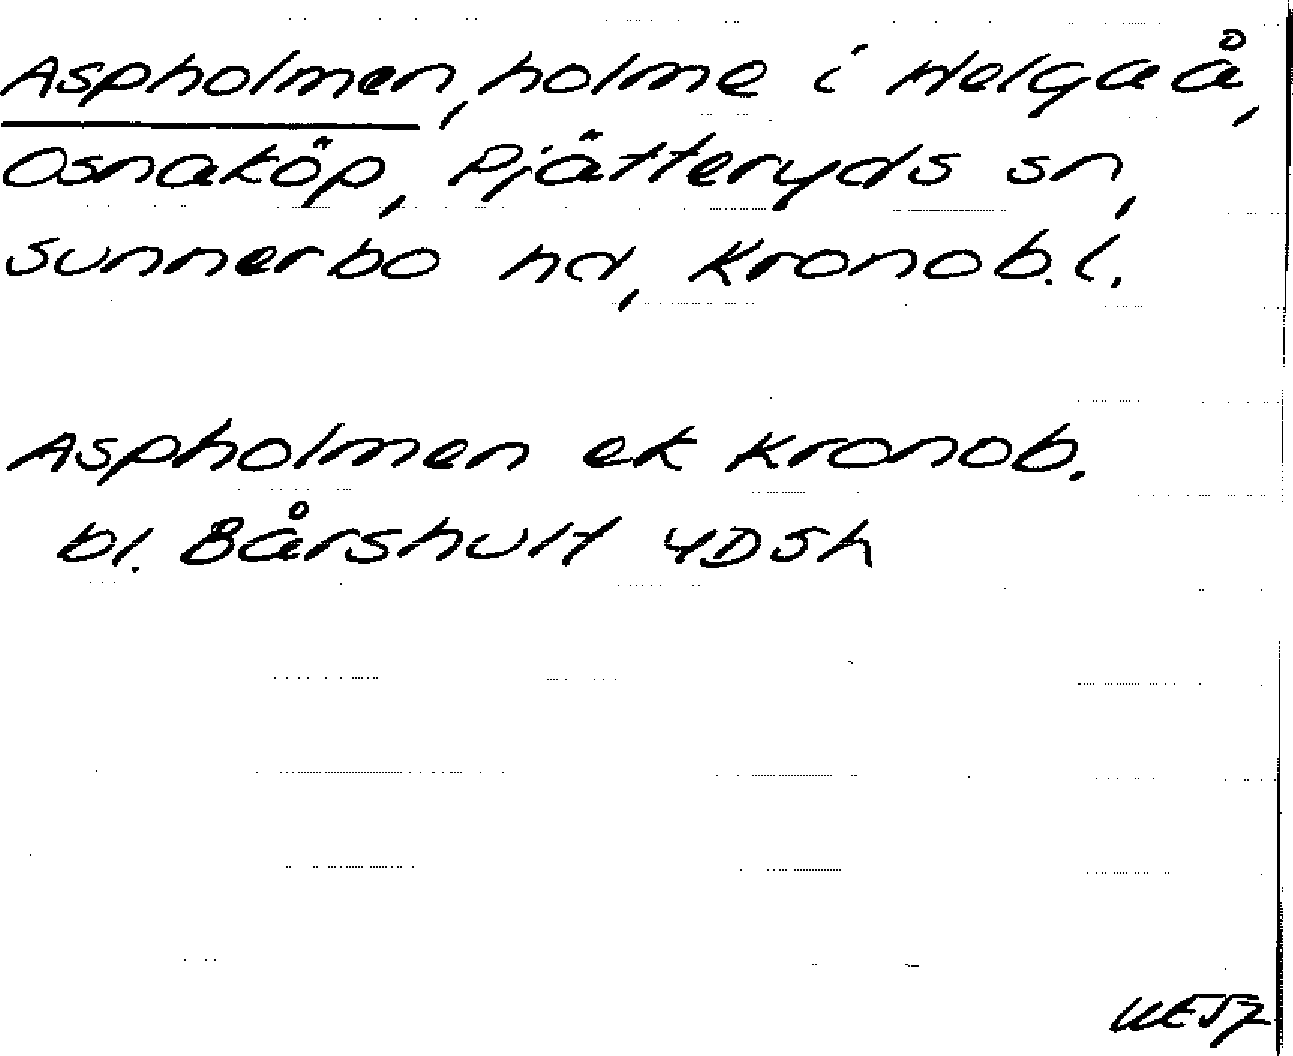 Aspholmen, holme i Helgaå,
Osnaköp, Pjätteryds sn,
Sunnerbo hd, Kronob. l.
Aspholmen ek Kronob.
bl. Bårshult 4D5h